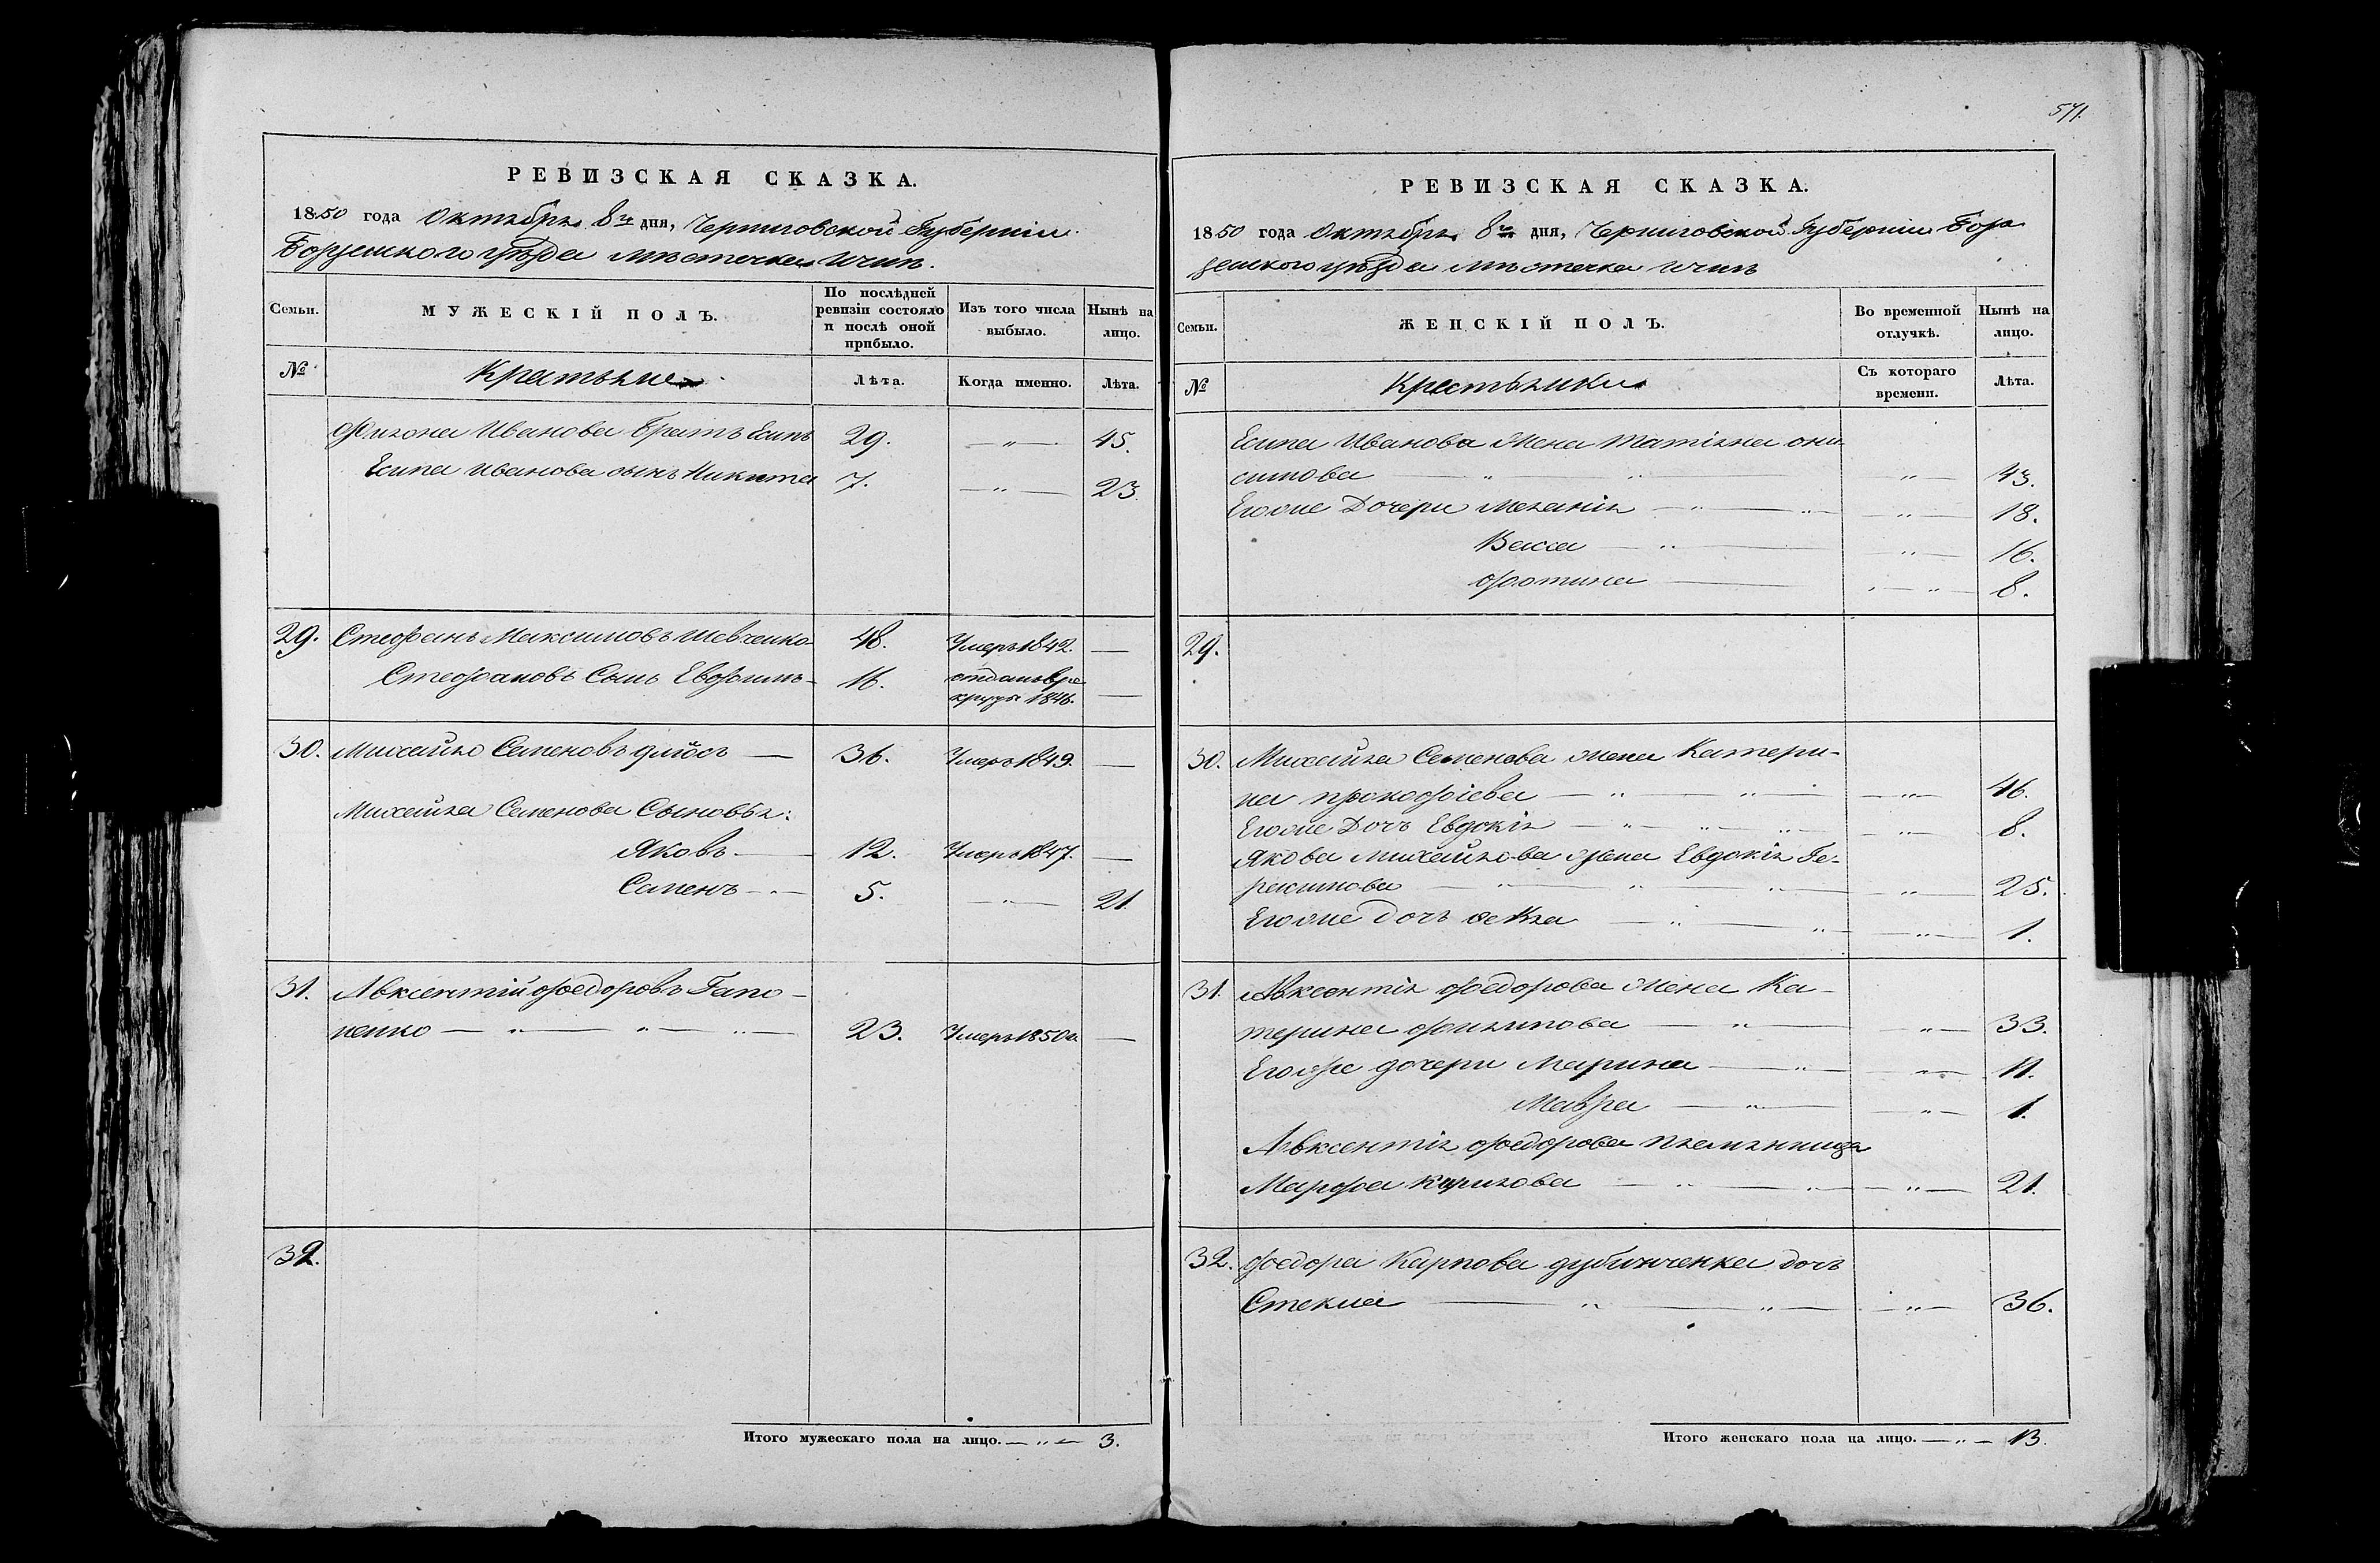 571.
РЕВИЗСКАЯ СКАЗКА.
1850 года Октября 8го дня, Черниговской Губерніи
Борзенского уѣзда мѣстечка Ични.
Семьи. МУЖЕСКІЙ ПОЛЪ. По послѣдней ревизіи состояло и послѣ оной прибыло. Изъ того числа выбыло. Нынѣ на лицо.
№ Крестьяне Лѣта. Когда именно. Лѣта.
Филона Иванова братъ Есипъ 29. — " — 45.
Есипа Иванова сынъ Никита 7. — " — 23.
29. Стефанъ Максимовъ Шевченко 48. Умеръ 1842. —
Стефановъ Сынъ Евфимъ 16. отданъ в ре
круты 1846. —
30. Михайло Семеновъ 36. Умеръ 1849. —
Михайла Семенова Сыновья:
Яковъ — 12. Умеръ 1847. —
Семенъ — " — 5. — " — 21
31. Авксентій Федоровъ Гапо-
ненко — " — " — " — 23. Умеръ 1850 г. —
32.
Итого мужескаго пола на лицо. — " — 3.
РЕВИЗСКАЯ СКАЗКА.
1850 года Октября 8го дня, Черниговской Губерніи Бор
зенского уѣзда мѣстечка Ични
Семьи. ЖЕНСКІЙ ПОЛЪ. Во временной отлучкѣ. Нынѣ на лицо.
№ Крестьянки Съ котораго времени. Лѣта.
Есипа Иванова жена Татіяна они
симова — " — " — " — 43.
Его же Дочери Меланія — " — " — " — 18.
Васса — " — " — 16.
Фотина — " — " — 8.
29.
30. Михайла Семенова жена Катери-
на прокофіева — " — " — " — 46.
Его же Дочь Евдокія — " — " — " — 8.
Якова Михайлова жена Евдокія Ге-
расимова — " — " — " — 25.
Его же дочь Фекла — " — " — " — 1.
31. Авксентія Федорова жена Ка-
терина Филипова — " — " — 33.
Его же дочери Марина — " — " — 11.
Мавра — " — " — 1.
Авксентія Федорова племянница
Марфа Кирилова — " — " — " — 21.
32. Федора Карпова дубинченка дочь
Стекла — " — " — " — 36.
Итого женскаго пола на лицо. — " — 13.